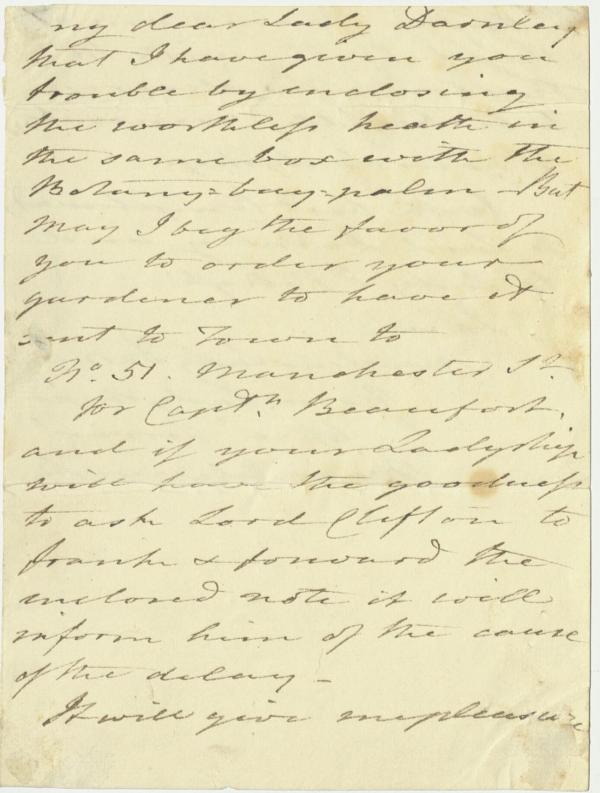 my dear Lady Darnley
that I have given you
trouble by enclosing
the worthless heath in
the same box with the
Botany=bay=palm - But
may I beg the favor of
you to order your
gardener to have it
sent to Town to
No. 51. Manchester St.
for Captn. Beaufort.
and if your Ladyship
will have the goodness
to ask Lord Clifton to
frank & forward the
inclosed note it will
inform him of the cause
of the delay -
It will give me pleasure